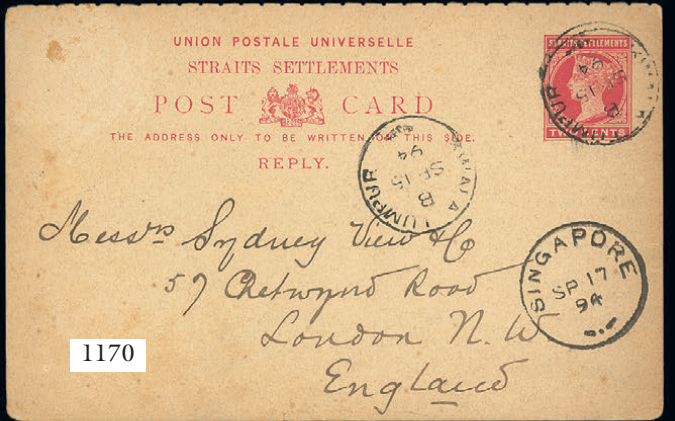 UNION POSTALE UNIVERSELLE
STRAITS SETTLEMENTS
POST CARD
THE ADDRESS ONLY TO BE WRITTEN ON THIS SIDE.
REPLY.
STRAITS SETTLEMENTS
TWO CENTS
LUMPUR
B
SP 15
94
KWALA LUMPUR
B
SP 15
94
SINGAPORE
SP 17
94
Messrs Sydney View & Co
57 Chetwynd Road
London N. W
England
1170